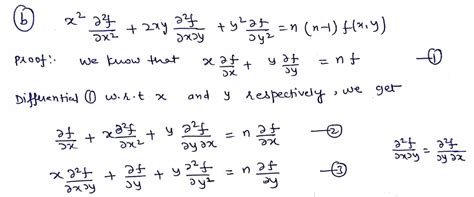 ⓑ x² ∂²f/∂x² + 2xy ∂²f/∂x∂y + y² ∂²f/∂y² = n (n-1) f(x,y)
Proof:- We know that x ∂f/∂x + y ∂f/∂y = n f —①
Differential ① w.r.t x and y respectively, we get
∂f/∂x + x ∂²f/∂x² + y ∂²f/∂y∂x = n ∂f/∂x —②
x ∂²f/∂x∂y + ∂f/∂y + y ∂²f/∂y² = n ∂f/∂y —③
∂²f/∂x∂y = ∂²f/∂y∂x